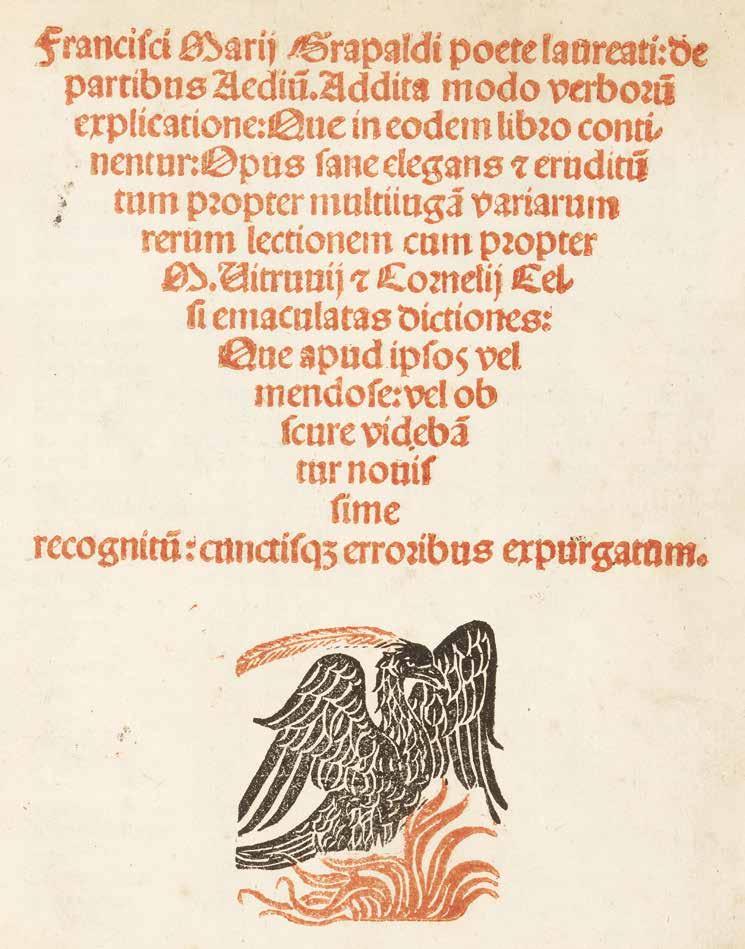 Francisci Marij Grapaldi poete laureati: de
partibus Aediũ. Addita modo verborũ
explicatione: Que in eodem libro conti-
nentur: Opus sane elegans ⁊ eruditũ
tum propter multiiugã variarum
rerum lectionem cum propter
M. Vitruuij ⁊ Cornelij Cel-
si emaculatas dictiones:
Que apud ipsos vel
mendose: vel ob
scure videbã
tur nouis
sime
recognitũ: cunctisqꝫ erroribus expurgatum.